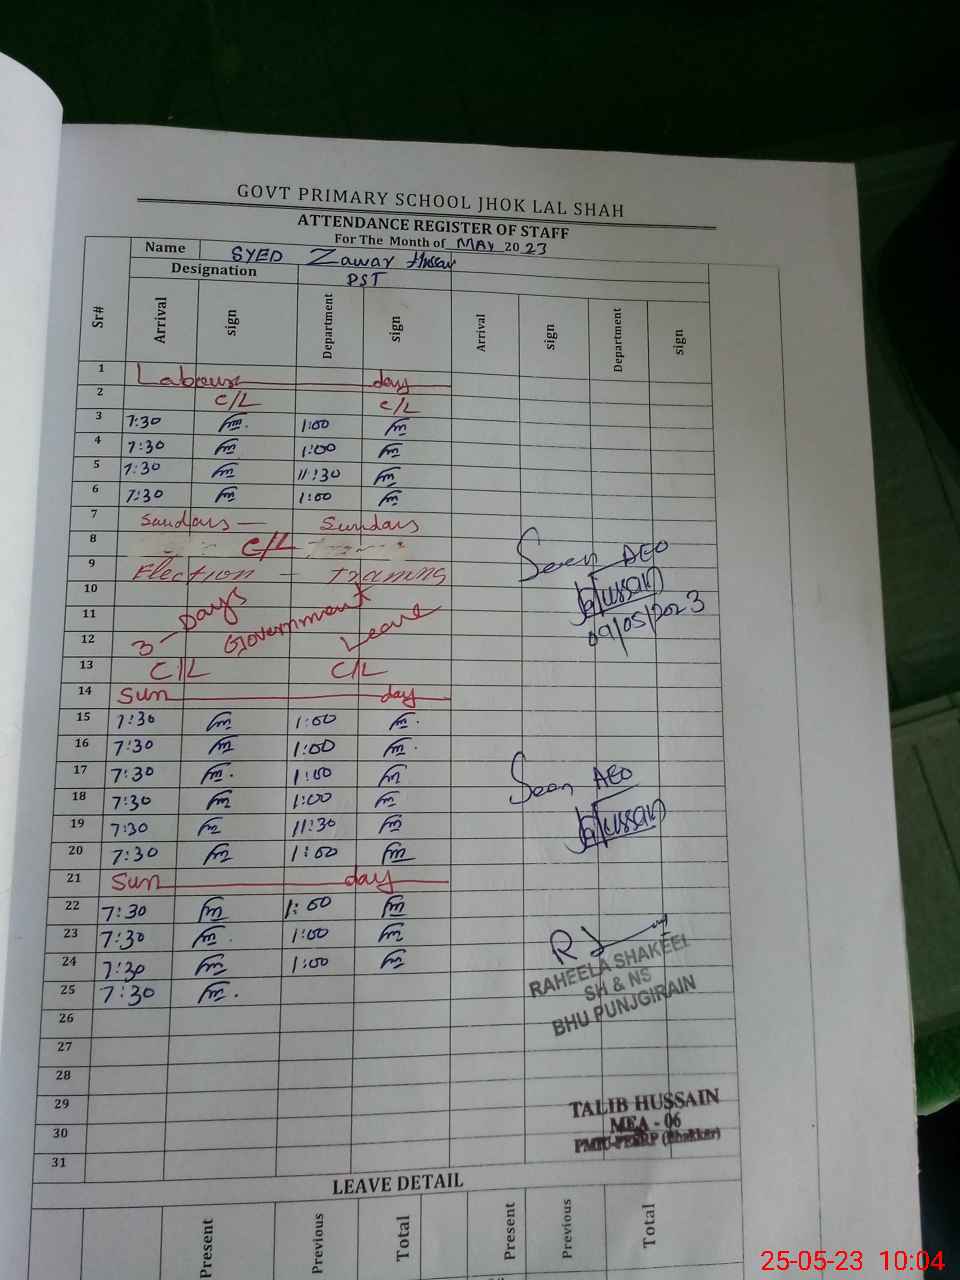 GOVT PRIMARY SCHOOL JHOK LAL SHAH
ATTENDANCE REGISTER OF STAFF
For The Month of MAY 2023
Name SYED Zawar Hussain
Designation PST
Sr# Arrival sign Department sign Arrival sign Department sign
1 Labour day
2 C/L C/L
3 7:30 1:00
4 7:30 1:00
5 7:30 11:30
6 7:30 1:00
7 Sundays — Sundays
8 C/L
9 Election - Training
10
11 3-Days Government Leave
12
13 C/L C/L
14 Sun day
15 7:30 1:00
16 7:30 1:00
17 7:30 1:00
18 7:30 1:00
19 7:30 11:30
20 7:30 1:00
21 Sun day
22 7:30 1:00
23 7:30 1:00
24 7:30 1:00
25 7:30
26
27
28
29
30
31
Seen AEO
Hussain
09/05/2023
Seen AEO
Hussain
RAHEELA SHAKEEL
SH & NS
BHU PUNJGIRAIN
TALIB HUSSAIN
MEA - 06
(Bhakkar)
LEAVE DETAIL
Present Previous Total Present Previous Total
25-05-23 10:04